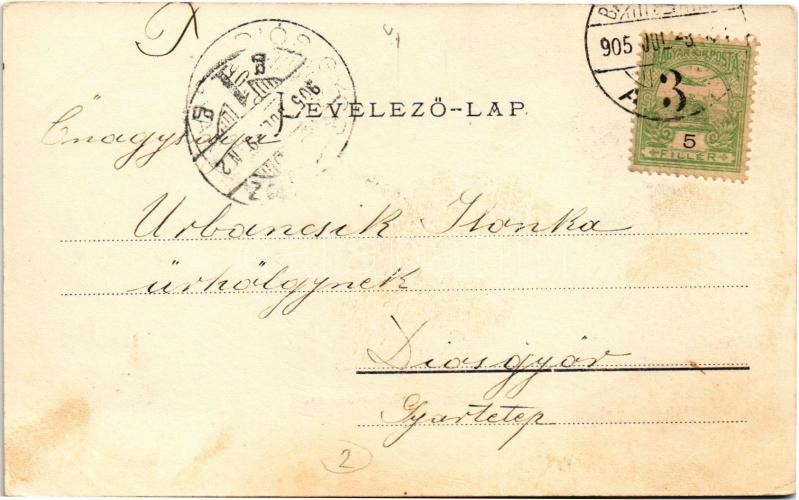 LEVELEZŐ-LAP.
Őnagysága
Urbancsik Ilonka
úrhölgynek
Diósgyőr
Gyartelep
905 JUL
3
MAGYAR KIR. POSTA
5
FILLÉR
DIÓSGYŐR
905
2